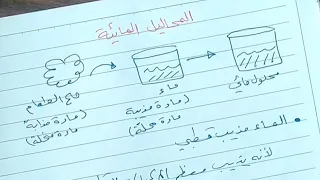 المحاليل المائية
ملح الطعام
(مادة مذابة
مادة منحلّة)
ماء
(مادة مذيبة
مادة محلّة)
محلول مائي
• الماء مذيب قطبي
لأنه يذيب معظم